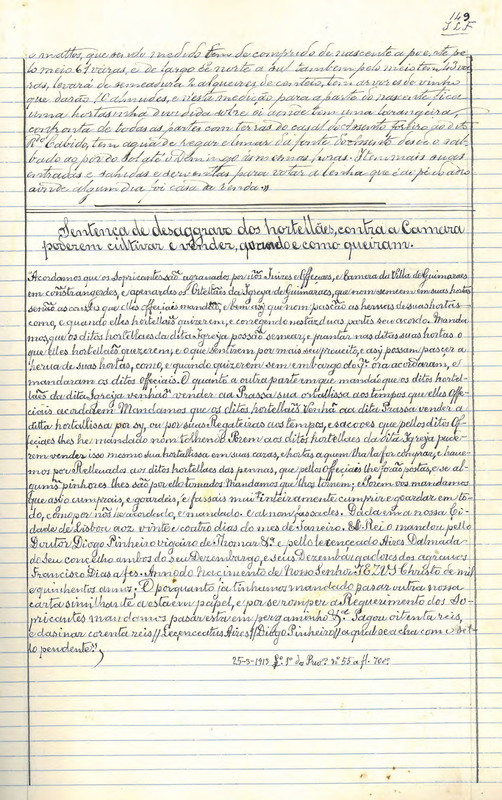 149
J L F
e mattos, que sendo medido tem de comprido de nascente a poente pe-
lo meio 61 varas, e de largo de norte a sul tambem pelo meio tem 43 va-
ras, levará de semeadura 2 alqueires de centeio, tem arvores de vinho
que darão 10 almudes, e nesta medição para a parte do nascente fica
uma hortasinha dividida sobre si aonde tem uma larangeira,
confronta de todas as partes com terras do casal do Assento foreiro ao dito
Rdo Cabido, tem agua de regar e limar da fonte do Assento desde o sab-
bado ao pôr do sol até o Domingo ás mesmas horas. Item mais suas
entradas e sahidas e serventias para votar a lenha que é ao pé do adio
aonde algum dia foi casa da venda.»
Sentença de desaggravo dos hortellães, contra a Camara
poderem cultivar e vender, quando e como queiram.
"Acordamos que os sopricantes são agravados por vós Juizes e Offeciaes, e Camera da Villa de Guimaraes
em constrangerdes, e apenardes os Ortelãos da Igreja de Guimaraes, que nom semeem em suas hortas
senão as couzas que elles offeciais mandão, e bem asy que nom pascão as hervas de suas hortas
como, e quando elles hortellaõs quizerem, e corregendo nestas duas partes seu acordo. Manda-
mos, que os ditos hortellaens da dita Igreja possão semear, e prantar nas ditas suas hortas o
que elles hortellaõs quezerem, e o que sentirem por mais seu proveito, e asy possam pascer a
herva de suas hortas, como, e quando quizerem sem embargo do q' ora acordaram, e
mandaram os ditos offeciais. O quanto a outra parte em que mandão que os ditos hortel-
laõs da dita Igreja venhão vender aa Prassa sua ortallissa aos tempos que elles Offe-
ciais acordarem Mandamos que os ditos hortellaõs venhã aa dita Prassa vender a
dita hortallissa por sy, ou por suas Regateiras aos tempos, e sacoes que pellos ditos Of-
feciaes lhes he mandado nom tolhendo Porem aos ditos hortellaens da dita Igreja pude-
rem vender isso mesmo sua hortallissa em suas cazas, e hortas a quem lha la for comprar, e have-
mos por Relleuados aos ditos hortellaes das pennas, que pellos Offeciais lhe forão postas, e se al-
guns pinhores lhes são por ello tomados Mandamos que lhos tornem; e Porem vos mandamos
que asi o cumprais, e goardeis, e fassais mui inteiramente cumprir e goardar em to-
do, como por nós he acordado, e mandado. e al nom fassades. Dada em a nossa Ci-
dade de Lisboa aoz vinte e coatro dias do mes de Janeiro. El-Rei o mandou pello
Doutor Diogo Pinheiro vigairo de Thomar &ª e pello lecenceado Aires Dalmada
do seu concelho ambos do seu Dezembargo, e seus Dezembargadores dos agravos
Francisco Dias a fes. Anno do Nascimento de Nosso Senhor JEZUS Christo de mil
e quinhentos annos. O porquanto ja tinhamos mandado pasar outra nossa
carta similhante a esta em papel, e por se romper a Requerimento dos So-
pricantes mandamos pasar esta em pergaminho &ª. Pagou oitenta reis,
e da sinar corenta reis // Lecenceatus Aires // Diogo Pinheiro // a qual se acha com o sel-
lo pendente",
25-3-1913 Lº 1º do Provº nº 55 a fl. 70vº